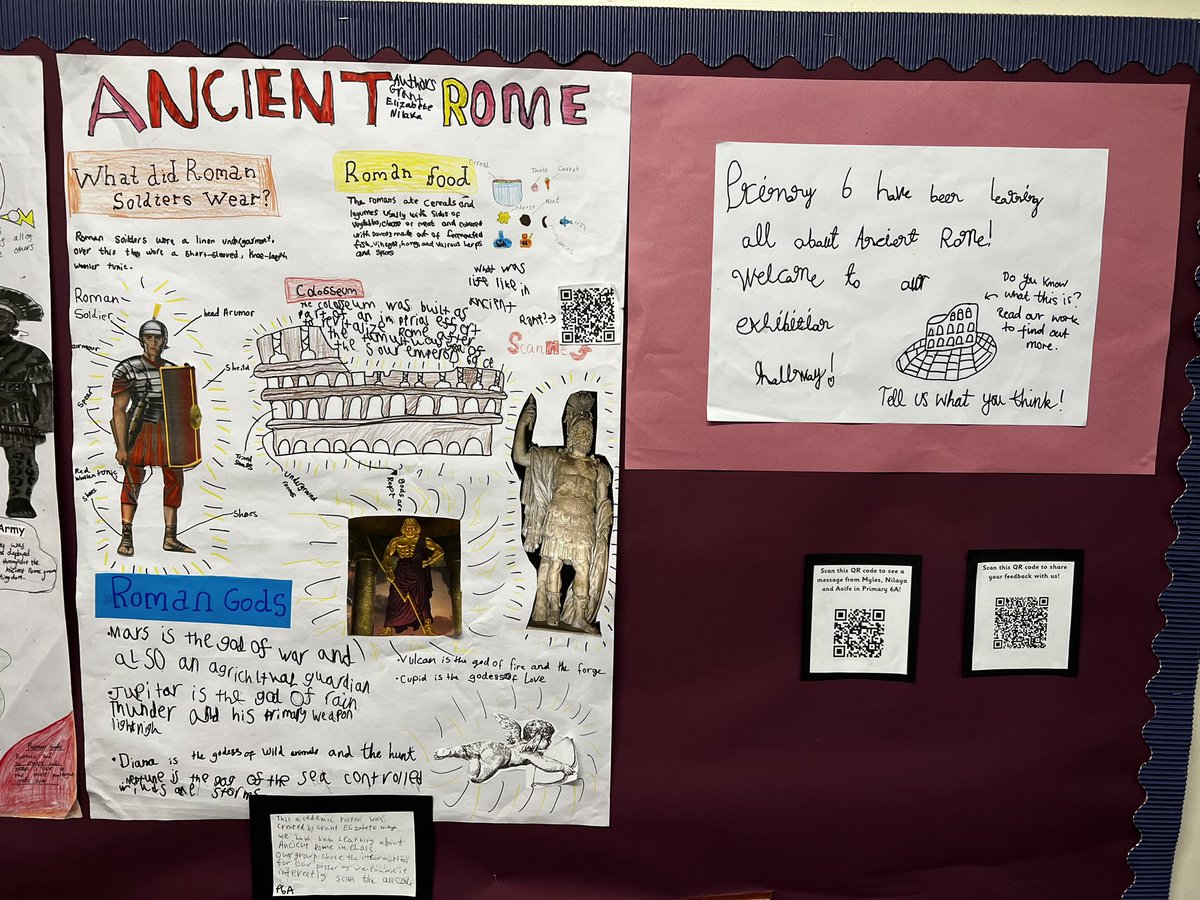 ANCIENT ROME
Authors
Grant
Elizabete
Nilaya
What did Roman
Soldiers Wear?
Roman Soilders wore a linen undergarment,
over this they wore a short-sleeved, knee-length
woolen tunic.
Roman
Soldier
head Arumor
armour
Sheild
Spear
Red
Woollen tonic
Shoes
Shoes
Roman food
The romans ate cereals and
legumes usally with sides of
vegtables, cheese or meat and covered
with sauces made out of fermented
fish, vinegar, honey, and various herbs
and spices
Cereal
Carrot
cheese
meat
What was
life like in
ancient
Rome?
Scan Me
Colosseum
The colosseum was built as
part of an imperial effort
to revitalize Rome after
the tumultuous year of
the four emperors
Underground
rooms
gods are
Roman Gods
• Mars is the god of war and
ALSO an agricultural guardian
• Jupitar is the god of rain
Thunder and his primary weapon
lightnigh
• Diana is the godess of wild animals and the hunt
• Neptune is the god of the sea controlled
winds and storms
• Vulcan is the god of fire and the forge
• Cupid is the godess of Love
This academic poster was
created by Grant Elizabete Nilaya
we have been Learning about
Ancient Rome in class
our group chose the information
for our poster as we found it
interestly scan the QR code
P6A
Primary 6 have been learning
all about Ancient Rome!
Welcome to our
exhibition
hallway!
Do you know
what this is?
Read our work
to find out
more.
Tell us what you think!
Scan this QR code to see a
message from Myles, Nilaya
and Aoife in Primary 6A!
Scan this QR code to share
your feedback with us!
Army